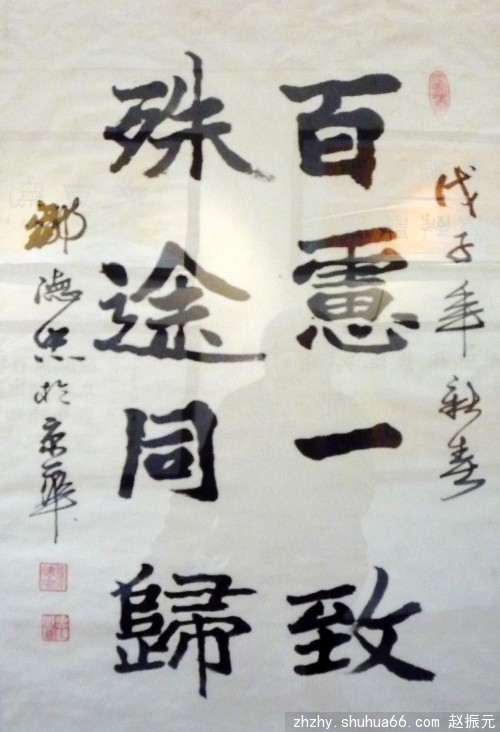 戊子年新春
百慮一致
殊途同歸
鄧德忠於京華
zhzhy.shuhua66.com 赵振元